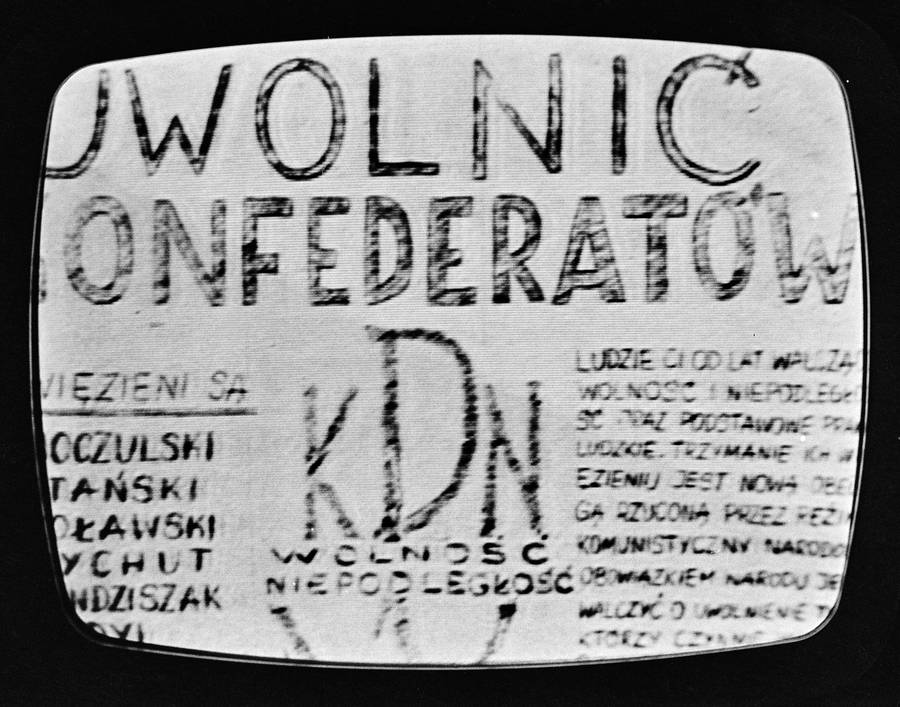 UWOLNIĆ
ONFEDERATÓW
WIĘZIENI SĄ
OCZULSKI
TAŃSKI
OŁAWSKI
YCHUT
NDZISZAK
KDN
WOLNOŚĆ
NIEPODLEGŁOŚĆ
LUDZIE CI OD LAT WALCZĄ
WOLNOŚĆ I NIEPODLEGŁO
ŚĆ ORAZ PODSTAWOWE PRA
LUDZKIE. TRZYMANIE ICH W
EZIENIU JEST NOWĄ OBEL
GĄ RZUCONĄ PRZEZ REŻIM
KOMUNISTYCZNY NARODO
OBOWIĄZKIEM NARODU JE
WALCZYĆ O UWOLNIENIE
KTÓRZY CZYNNIE